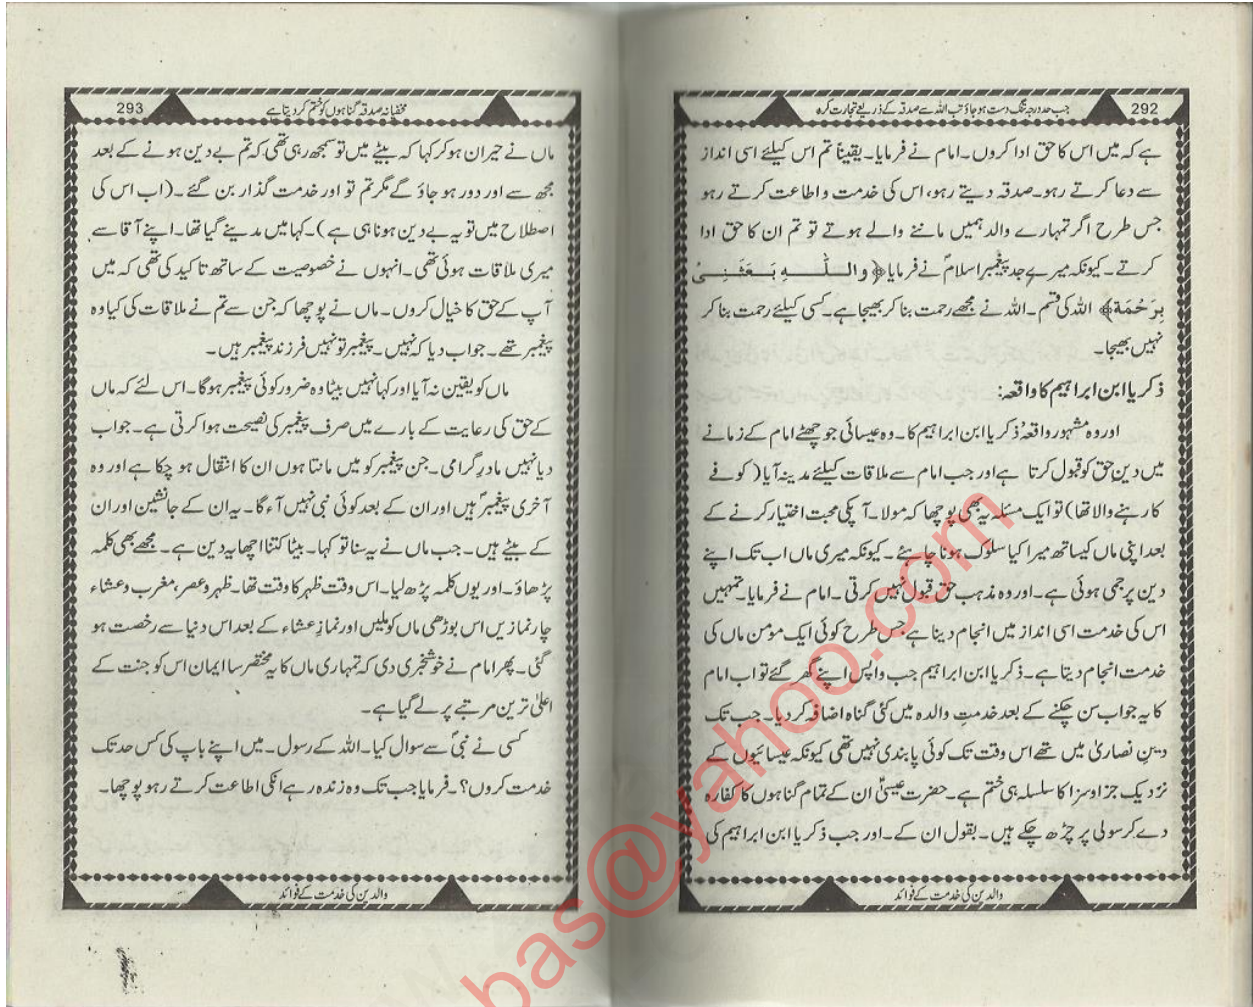 292 جب حد درجہ تنگ دست ہو جاؤ تب اللہ سے صدقہ کے ذریعے تجارت کرو
ہے کہ میں اس کا حق ادا کروں۔ امام نے فرمایا۔ یقیناً تم اس کیلئے اسی انداز
سے دعا کرتے رہو۔ صدقہ دیتے رہو، اس کی خدمت و اطاعت کرتے رہو
جس طرح اگر تمہارے والد ہمیں ماننے والے ہوتے تو تم ان کا حق ادا
کرتے۔ کیونکہ میرے جد پیغمبر اسلامؐ نے فرمایا ﴿والـلّٰـہِ بَـعَثَـنِـیْ
بِرَحْمَة﴾ اللہ کی قسم۔ اللہ نے مجھے رحمت بنا کر بھیجا ہے۔ کسی کیلئے زحمت بنا کر
نہیں بھیجا۔
ذکریا ابن ابراہیم کا واقعہ:
اور وہ مشہور واقعۂ ذکریا ابن ابراہیم کا۔ وہ عیسائی جو چھٹے امام کے زمانے
میں دین حق کو قبول کرتا ہے اور جب امام سے ملاقات کیلئے مدینہ آیا (کوفے
کا رہنے والا تھا) تو ایک مسئلہ یہ بھی پوچھا کہ مولا۔ آپکی محبت اختیار کرنے کے
بعد اپنی ماں کیساتھ میرا کیا سلوک ہونا چاہئے۔ کیونکہ میری ماں اب تک اپنے
دین پر جمی ہوئی ہے۔ اور وہ مذہب حق قبول نہیں کرتی۔ امام نے فرمایا۔ تمہیں
اس کی خدمت اسی انداز میں انجام دینا ہے جس طرح کوئی ایک مومن ماں کی
خدمت انجام دیتا ہے۔ ذکریا ابن ابراہیم جب واپس اپنے گھر گئے تو اب امام
کا یہ جواب سن چکنے کے بعد خدمتِ والدہ میں کئی گناہ اضافہ کر دیا۔ جب تک
دینِ نصاریٰ میں تھے اس وقت تک کوئی پابندی نہیں تھی کیونکہ عیسائیوں کے
نزدیک جزا و سزا کا سلسلہ ہی ختم ہے۔ حضرت عیسیٰؑ ان کے تمام گناہوں کا کفارہ
دے کر سولی پر چڑھ چکے ہیں۔ بقول ان کے۔ اور جب ذکریا ابن ابراہیم کی
والدین کی خدمت کے فوائد
مخفیانہ صدقہ گناہوں کو ختم کر دیتا ہے 293
ماں نے حیران ہو کر کہا کہ بیٹے میں تو سمجھ رہی تھی کہ تم بے دین ہونے کے بعد
مجھ سے اور دور ہو جاؤ گے مگر تم تو اور خدمت گذار بن گئے۔ (اب اس کی
اصطلاح میں تو یہ بے دین ہونا ہی ہے)۔ کہا میں مدینے گیا تھا۔ اپنے آقا سے
میری ملاقات ہوئی تھی۔ انہوں نے خصوصیت کے ساتھ تاکید کی تھی کہ میں
آپ کے حق کا خیال کروں۔ ماں نے پوچھا کہ جن سے تم نے ملاقات کی کیا وہ
پیغمبر تھے۔ جواب دیا کہ نہیں۔ پیغمبر تو نہیں فرزند پیغمبر ہیں۔
ماں کو یقین نہ آیا اور کہا نہیں بیٹا وہ ضرور کوئی پیغمبر ہوگا۔ اس لئے کہ ماں
کے حق کی رعایت کے بارے میں صرف پیغمبر کی نصیحت ہوا کرتی ہے۔ جواب
دیا نہیں مادرِ گرامی۔ جن پیغمبر کو میں مانتا ہوں ان کا انتقال ہو چکا ہے اور وہ
آخری پیغمبرؐ ہیں اور ان کے بعد کوئی نبی نہیں آءے گا۔ یہ ان کے جانشین اور ان
کے بیٹے ہیں۔ جب ماں نے یہ سنا تو کہا۔ بیٹا کتنا اچھا یہ دین ہے۔ مجھے بھی کلمہ
پڑھاؤ۔ اور یوں کلمہ پڑھ لیا۔ اس وقت ظہر کا وقت تھا۔ ظہر و عصر، مغرب و عشاء
چار نمازیں اس بوڑھی ماں کو ملیں اور نمازِ عشاء کے بعد اس دنیا سے رخصت ہو
گئی۔ پھر امام نے خوشخبری دی کہ تمہاری ماں کا یہ مختصر سا ایمان اس کو جنت کے
اعلیٰ ترین مرتبے پر لے گیا ہے۔
کسی نے نبیؐ سے سوال کیا۔ اللہ کے رسول۔ میں اپنے باپ کی کس حد تک
خدمت کروں؟۔ فرمایا جب تک وہ زندہ رہے انکی اطاعت کرتے رہو پوچھا۔
والدین کی خدمت کے فوائد
bas@yahoo.com